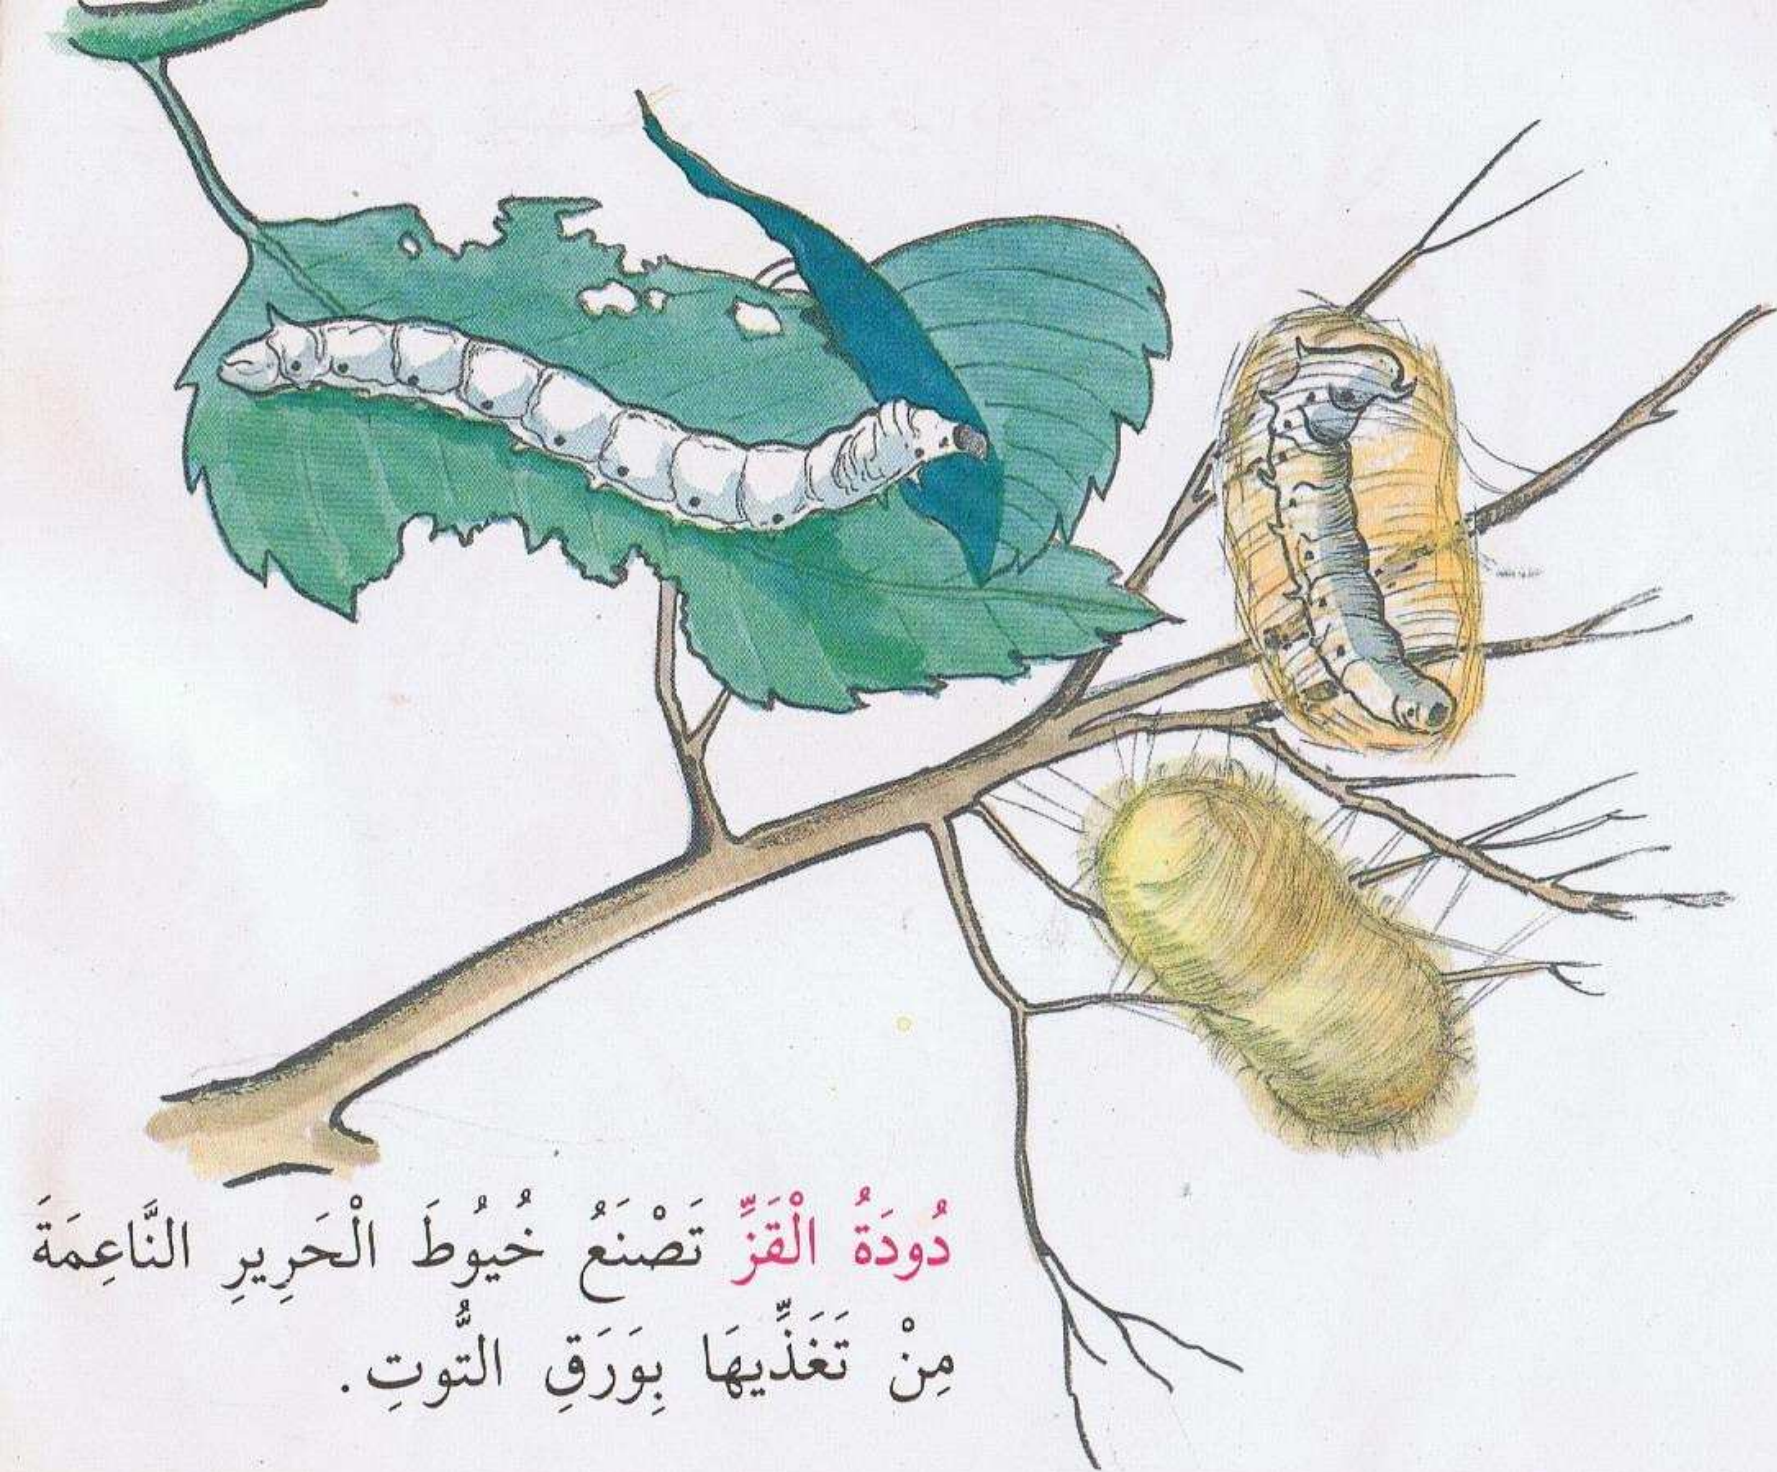 دُودَةُ الْقَزِّ تَصْنَعُ خُيُوطَ الْحَرِيرِ النَّاعِمَةَ
مِنْ تَغَذِّيهَا بِوَرَقِ التُّوتِ.